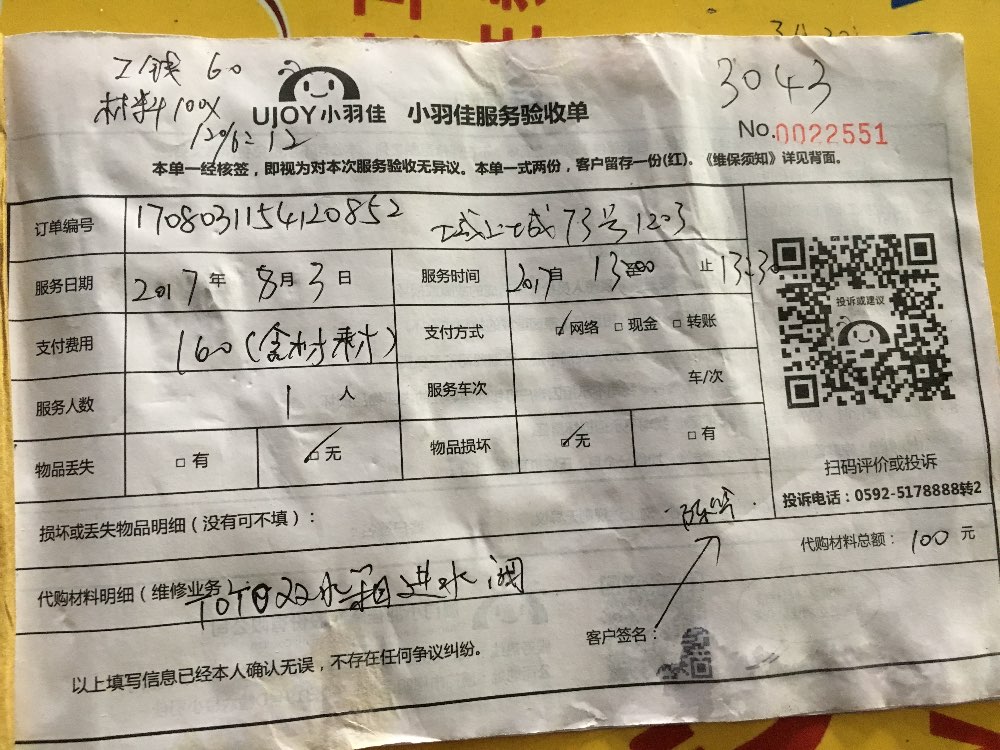 工钱 60
材料100X
12%=12
3043
UJOY小羽佳 小羽佳服务验收单
No.0022551
本单一经核签，即视为对本次服务验收无异议。本单一式两份，客户留存一份(红)。《维保须知》详见背面。
订单编号 1708031154120852 上城73号1203
服务日期 2017年 8月 3日 服务时间 2017 13:00 止 13:30
支付费用 160(含材料) 支付方式 网络 □现金 □转账
投诉或建议
服务人数 1 人 服务车次 车/次
物品丢失 □有 □无 物品损坏 □无 □有
扫码评价或投诉
投诉电话：0592-5178888转2
损坏或丢失物品明细（没有可不填）：
代购材料总额：100元
代购材料明细（维修业务 TOTO 水箱进水阀
客户签名：
以上填写信息已经本人确认无误，不存在任何争议纠纷。